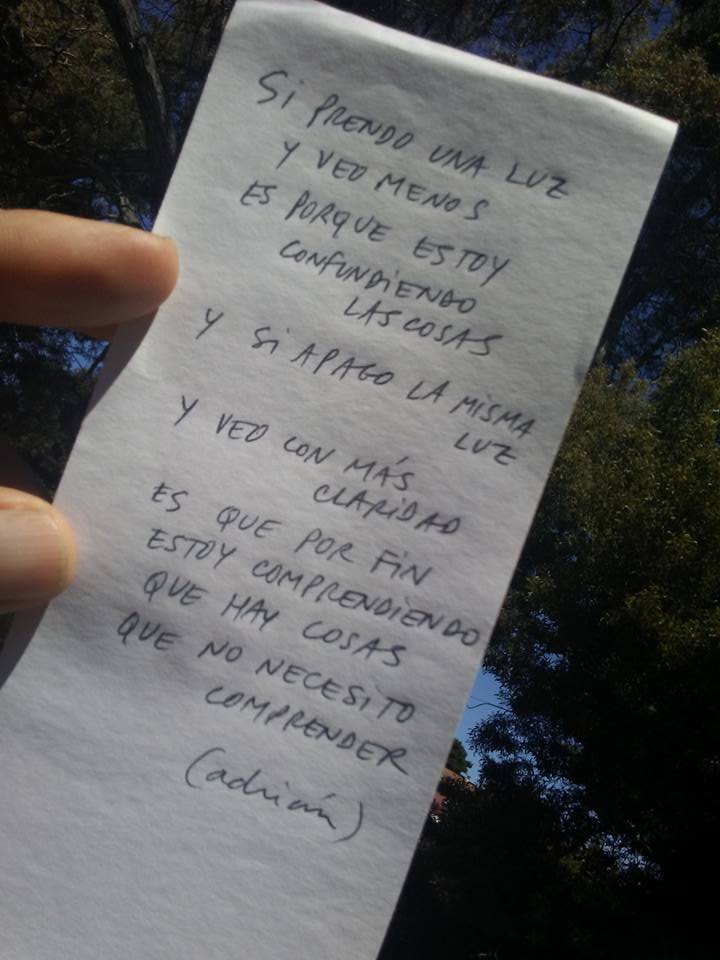 Si PRENDO UNA LUZ
Y VEO MENOS
ES PORQUE ESTOY
CONFUNDiENDO
LAS COSAS
Y Si APAGO LA MiSMA
LUZ
Y VEO CON MÁS
CLARiDAD
ES QUE POR FiN
ESTOY COMPRENDiENDO
QUE HAY COSAS
QUE NO NECESiTO
COMPRENDER
(adrián)